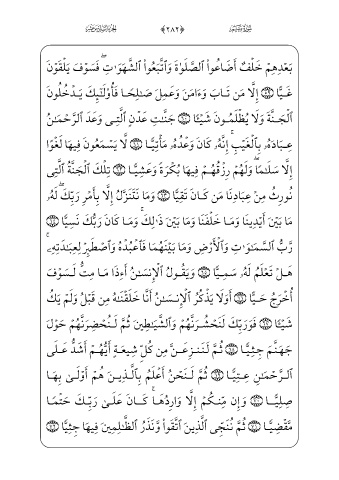 ﴿٢٨٢﴾
بَعْدِهِمْ خَلْفٌ أَضَاعُوا۟ ٱلصَّلَوٰةَ وَٱتَّبَعُوا۟ ٱلشَّهَوَٰتِ ۖ فَسَوْفَ يَلْقَوْنَ
غَيًّا ۝٥٩ إِلَّا مَن تَابَ وَءَامَنَ وَعَمِلَ صَٰلِحًا فَأُو۟لَٰٓئِكَ يَدْخُلُونَ
ٱلْجَنَّةَ وَلَا يُظْلَمُونَ شَيْـًٔا ۝٦٠ جَنَّٰتِ عَدْنٍ ٱلَّتِى وَعَدَ ٱلرَّحْمَٰنُ
عِبَادَهُۥ بِٱلْغَيْبِ ۚ إِنَّهُۥ كَانَ وَعْدُهُۥ مَأْتِيًّا ۝٦١ لَّا يَسْمَعُونَ فِيهَا لَغْوًا
إِلَّا سَلَٰمًا ۖ وَلَهُمْ رِزْقُهُمْ فِيهَا بُكْرَةً وَعَشِيًّا ۝٦٢ تِلْكَ ٱلْجَنَّةُ ٱلَّتِى
نُورِثُ مِنْ عِبَادِنَا مَن كَانَ تَقِيًّا ۝٦٣ وَمَا نَتَنَزَّلُ إِلَّا بِأَمْرِ رَبِّكَ ۖ لَهُۥ
مَا بَيْنَ أَيْدِينَا وَمَا خَلْفَنَا وَمَا بَيْنَ ذَٰلِكَ ۚ وَمَا كَانَ رَبُّكَ نَسِيًّا ۝٦٤
رَّبُّ ٱلسَّمَٰوَٰتِ وَٱلْأَرْضِ وَمَا بَيْنَهُمَا فَٱعْبُدْهُ وَٱصْطَبِرْ لِعِبَٰدَتِهِۦ ۚ
هَلْ تَعْلَمُ لَهُۥ سَمِيًّا ۝٦٥ وَيَقُولُ ٱلْإِنسَٰنُ أَءِذَا مَا مِتُّ لَسَوْفَ
أُخْرَجُ حَيًّا ۝٦٦ أَوَلَا يَذْكُرُ ٱلْإِنسَٰنُ أَنَّا خَلَقْنَٰهُ مِن قَبْلُ وَلَمْ يَكُ
شَيْـًٔا ۝٦٧ فَوَرَبِّكَ لَنَحْشُرَنَّهُمْ وَٱلشَّيَٰطِينَ ثُمَّ لَنُحْضِرَنَّهُمْ حَوْلَ
جَهَنَّمَ جِثِيًّا ۝٦٨ ثُمَّ لَنَنزِعَنَّ مِن كُلِّ شِيعَةٍ أَيُّهُمْ أَشَدُّ عَلَى
ٱلرَّحْمَٰنِ عِتِيًّا ۝٦٩ ثُمَّ لَنَحْنُ أَعْلَمُ بِٱلَّذِينَ هُمْ أَوْلَىٰ بِهَا
صِلِيًّا ۝٧٠ وَإِن مِّنكُمْ إِلَّا وَارِدُهَا ۚ كَانَ عَلَىٰ رَبِّكَ حَتْمًا
مَّقْضِيًّا ۝٧١ ثُمَّ نُنَجِّى ٱلَّذِينَ ٱتَّقَوا۟ وَّنَذَرُ ٱلظَّٰلِمِينَ فِيهَا جِثِيًّا ۝٧٢